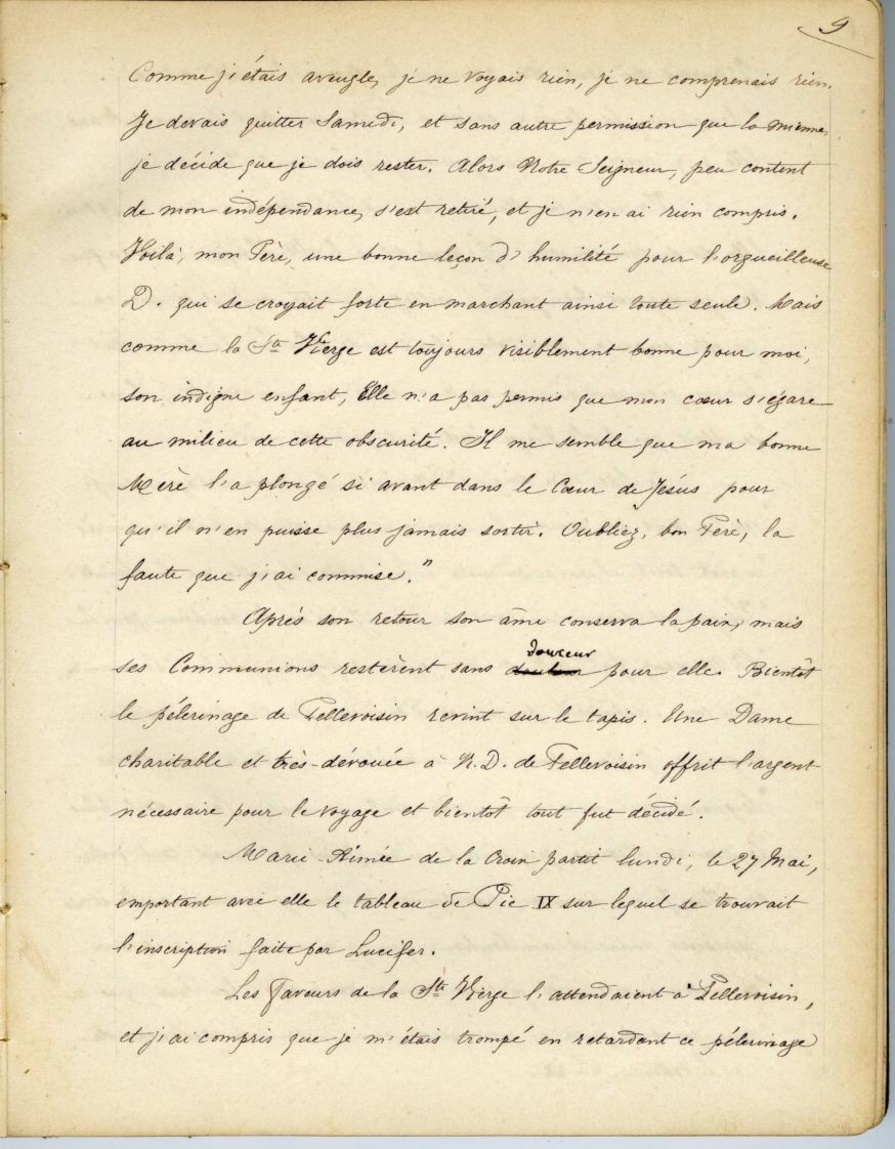 9
Comme j'étais aveugle, je ne voyais rien, je ne comprenais rien.
Je devais quitter Samedi, et sans autre permission que la mienne,
je décide que je dois rester. Alors Notre Seigneur, peu content
de mon indépendance, s'est retiré, et je n'en ai rien compris.
Voilà, mon Père, une bonne leçon d'humilité pour l'orgueilleuse
D. qui se croyait forte en marchant ainsi toute seule. Mais
comme la Ste Vierge est toujours visiblement bonne pour moi,
son indigne enfant, Elle n'a pas permis que mon cœur s'égare
au milieu de cette obscurité. Il me semble que ma bonne
Mère l'a plongé si avant dans le Cœur de Jésus pour
qu'il n'en puisse plus jamais sortir. Oubliez, bon Père, la
faute que j'ai commise."
Après son retour son âme conserva la paix, mais
douceur
ses Communions restèrent sans pour elle. Bientôt
le pélerinage de Pellevoisin revint sur le tapis. Une Dame
charitable et très-dévouée à N.D. de Pellevoisin offrit l'argent
nécessaire pour le voyage et bientôt tout fut décidé.
Marie Aimée de la Croix partit lundi, le 27 Mai,
emportant avec elle le tableau de Pie IX sur lequel se trouvait
l'inscription faite par Lucifer.
Les Faveurs de la Ste Vierge l'attendaient à Pellevoisin,
et j'ai compris que je m'étais trompé en retardant ce pélerinage